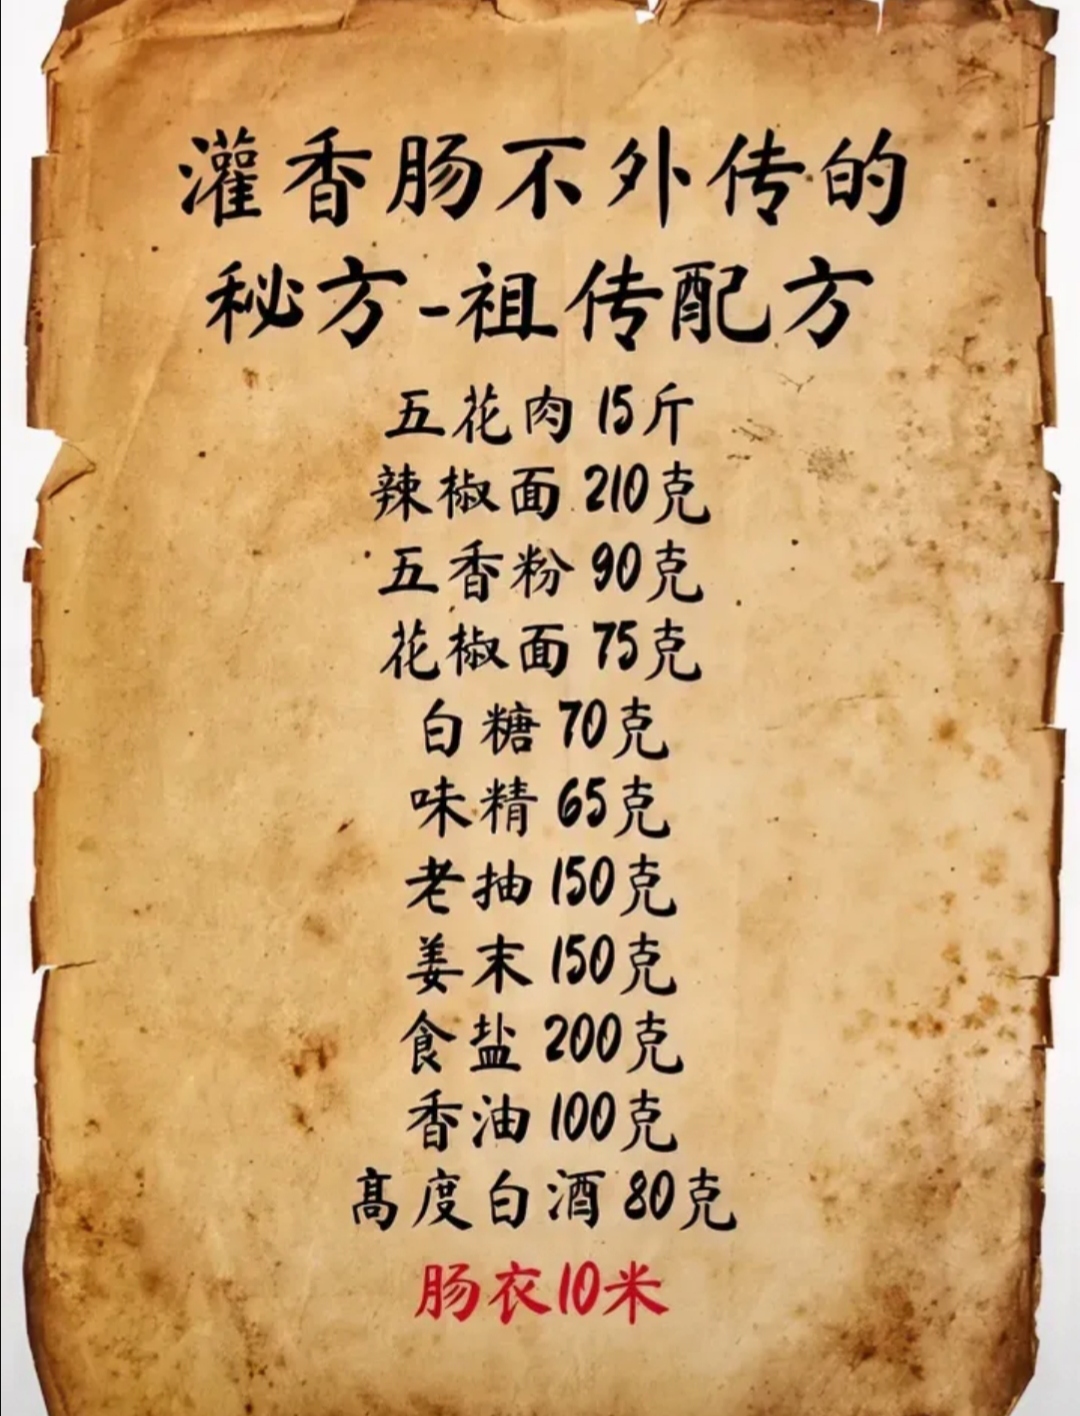 灌香肠不外传的
秘方-祖传配方
五花肉 15斤
辣椒面 210克
五香粉 90克
花椒面 75克
白糖 70克
味精 65克
老抽 150克
姜末 150克
食盐 200克
香油 100克
高度白酒 80克
肠衣10米